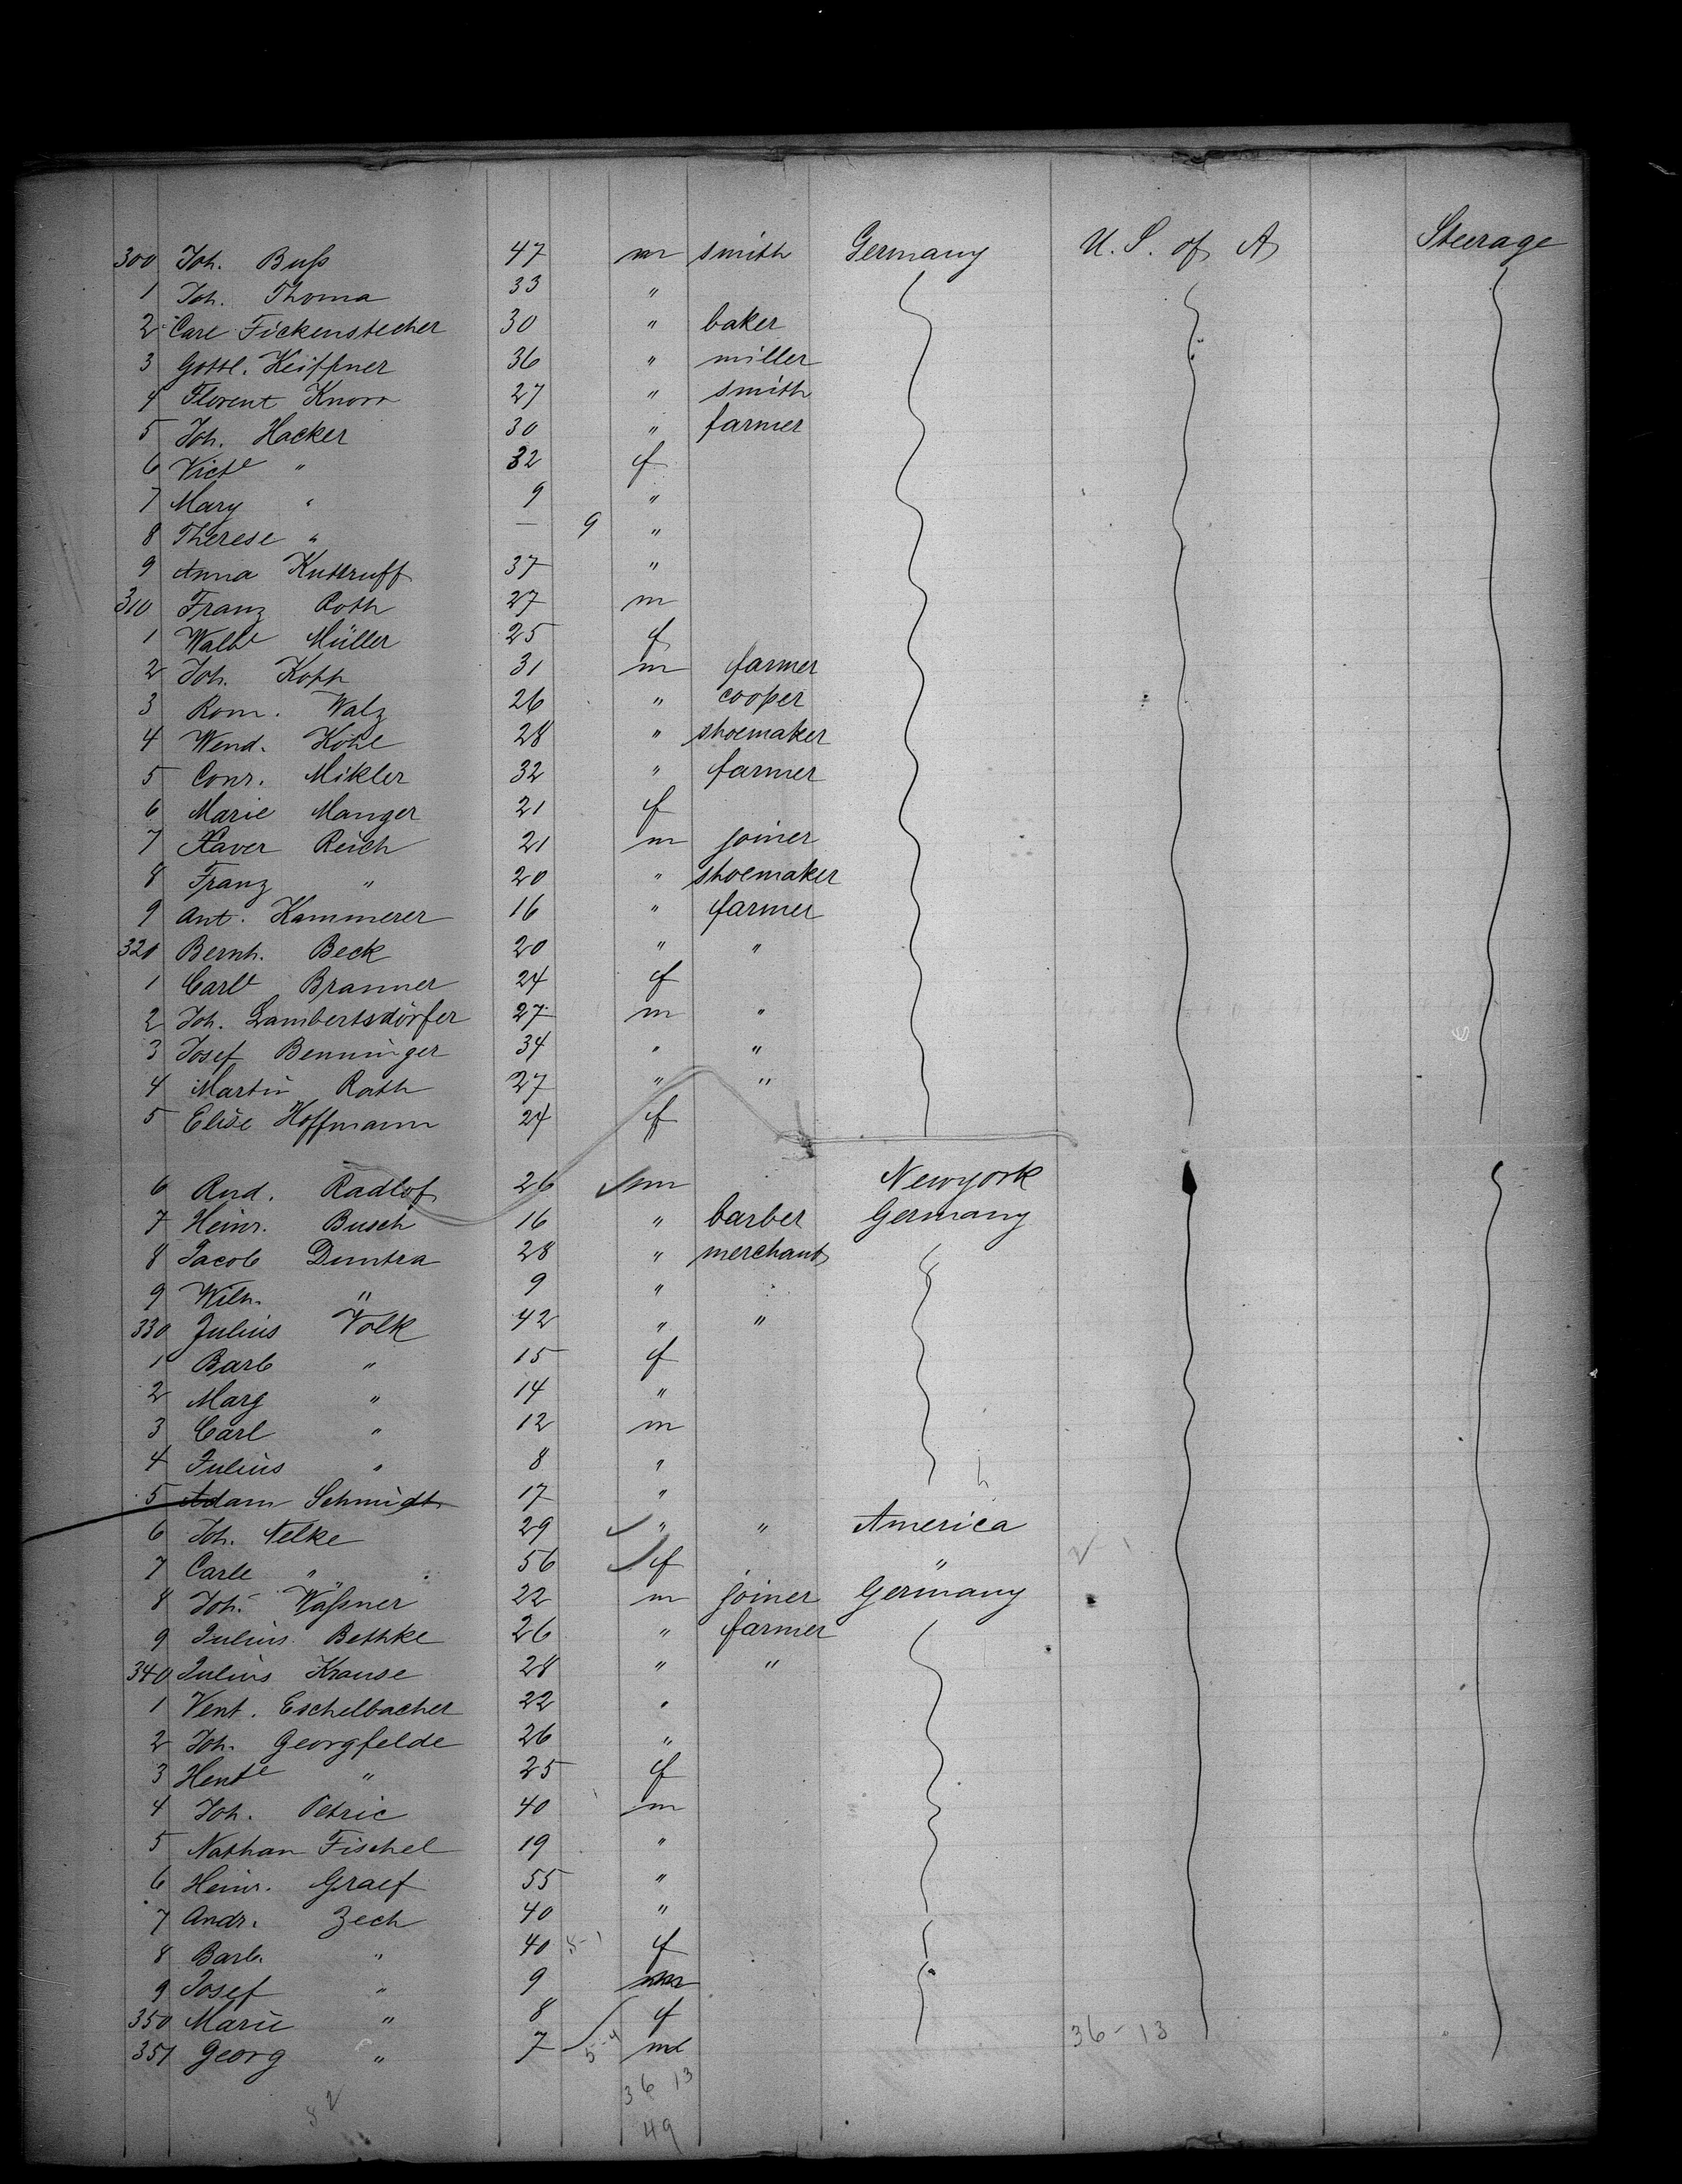 300 Joh. Buß 47 m smith Germany U. S. of A Steerage
1 Joh. Thoma 33 "
2 Carl Fickenstecher 30 " baker
3 Gottl. Keiffner 36 " miller
4 Florent Knorr 27 " smith
5 Joh. Hacker 30 " farmer
6 Victe " 32 f
7 Mary " 9 "
8 Therese " — 9 "
9 Anna Kuttruff 37 "
310 Franz Roth 27 m
1 Walbe Müller 25 f
2 Joh. Kopp 31 m farmer
3 Rom. Walz 26 " cooper
4 Wend. Köhl 28 " shoemaker
5 Conr. Mikler 32 " farmer
6 Marie Manger 21 f
7 Xaver Reich 21 m joiner
8 Franz " 20 " shoemaker
9 Ant. Kammerer 16 " farmer
320 Bernh. Beck 20 " "
1 Carle Branner 24 f
2 Joh. Lambertsdörfer 27 m "
3 Josef Benninger 34 " "
4 Martin Rath 27 " "
5 Elise Hoffmann 24 f
6 Rud. Radlof 26 m Newyork
7 Heinr. Busch 16 " barber Germany
8 Jacob Dumtra 28 " merchant
9 Wilh. " 9 "
330 Julius Volk 42 " "
1 Barb " 15 f
2 Marg " 14 "
3 Carl " 12 m
4 Julius " 8 "
5 Adam Schmidt 17 "
6 Joh. Nelke 29 " " America
7 Carle " 56 f "
8 Joh. Waßner 22 m joiner Germany
9 Julius Bethke 26 " farmer
340 Julius Krause 28 " "
1 Vent. Eschelbacher 22 "
2 Joh. Georgfelde 26 "
3 Hente " 25 f
4 Joh. Petric 40 m
5 Nathan Fischel 19 "
6 Heinr. Graef 55 "
7 Andr. Zech 40 "
8 Barb. " 40 5-1 f
9 Josef " 9 m
350 Marie " 8 f
351 Georg " 7 5-4 m 36-13
36 13
49